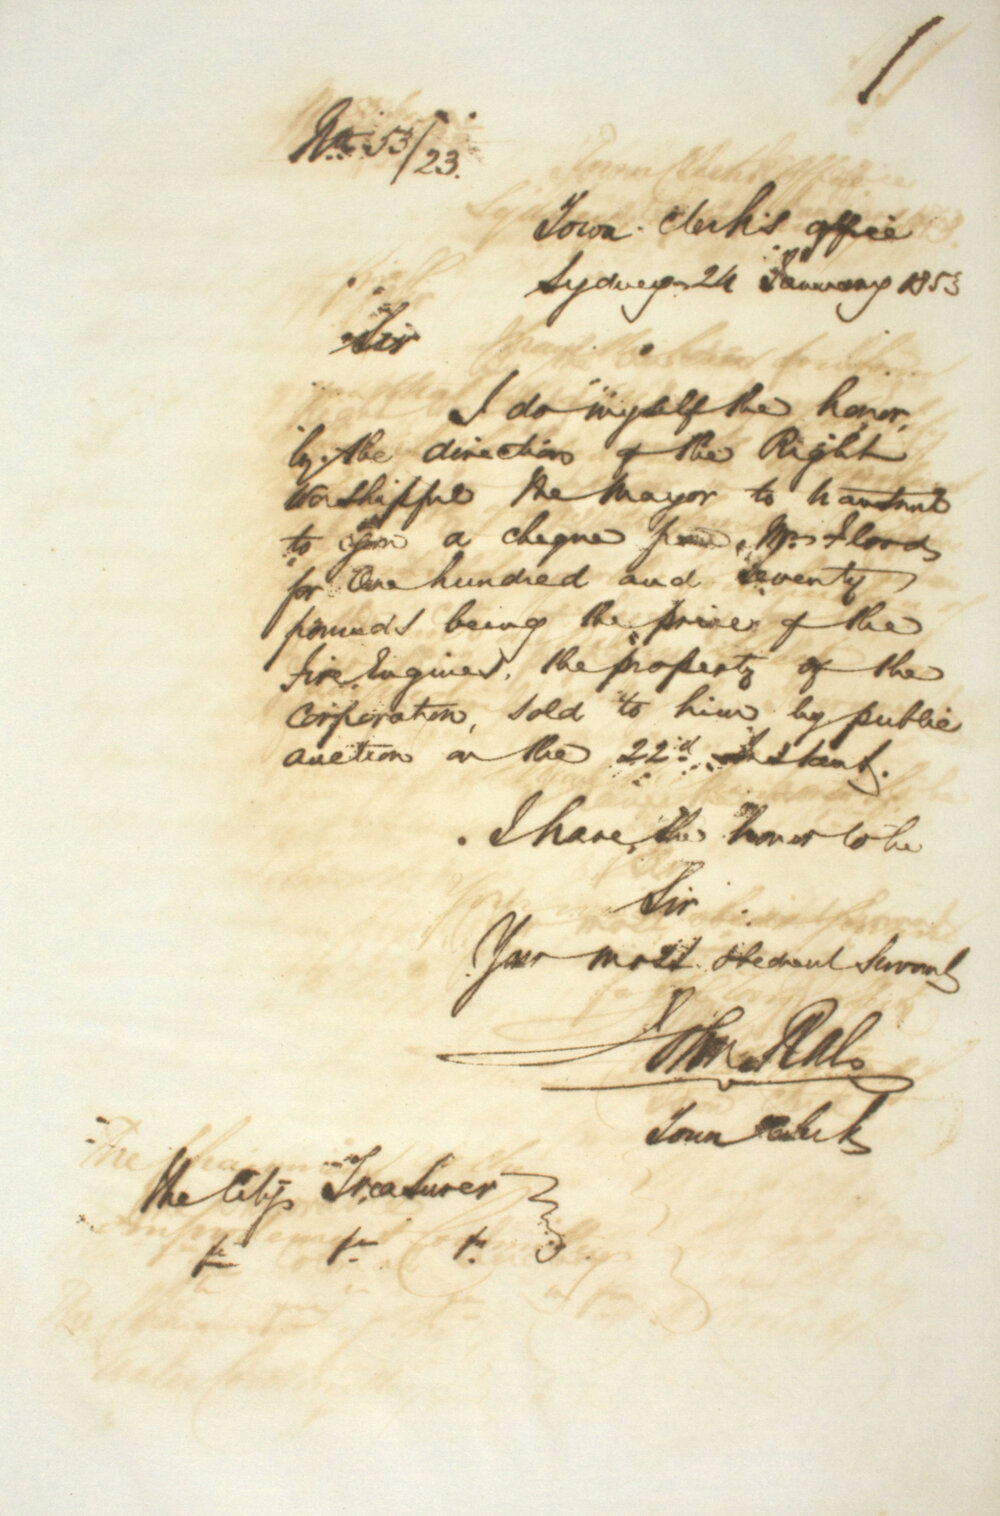 No. 53/23.
Town Clerk's office
Sydney 24 January 1853
Sir
I do myself the honor,
by the direction of the Right
Worshipful the Mayor to transmit
to you a cheque from Mr. Flood
for One hundred and seventy
pounds being the price of the
Fire Engines, the property of the
Corporation, sold to him by public
auction on the 22d. Instant.
I have the honor to be
Sir
Your most obedient Servant
John Rae
Town Clerk
The City Treasurer